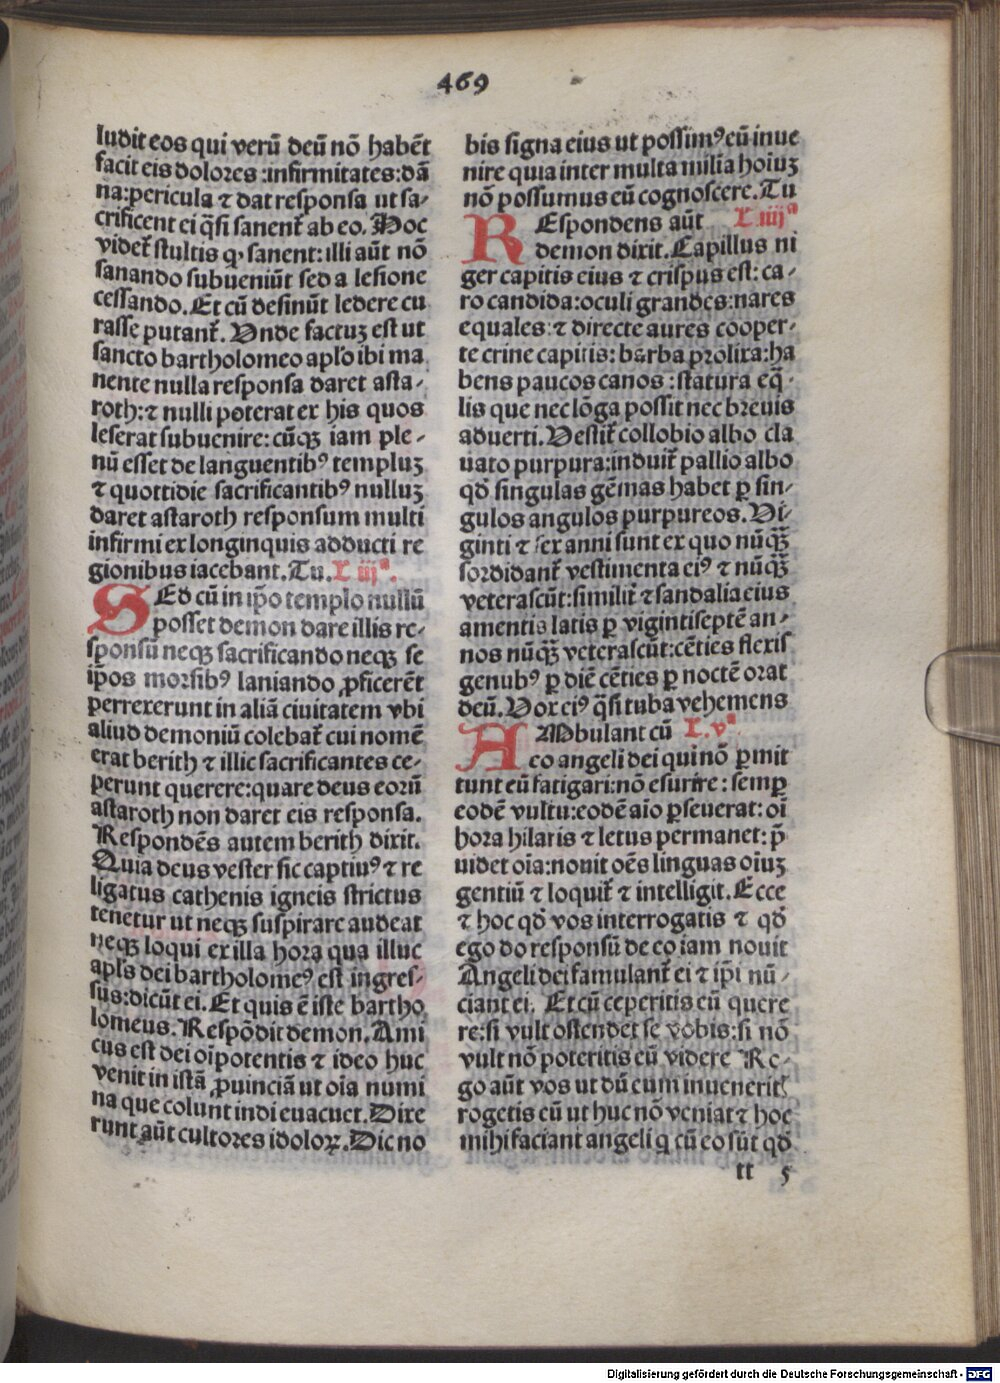 469
ludit eos qui verū deū nō habēt
facit eis dolores :infirmitates:dā
na:pericula ⁊ dat responsa ut sa-
crificent ei q̄si sanent̄ ab eo. Hoc
videt̄ stultis q̇ sanent: illi aūt nō
sanando subueniūt sed a lesione
cessando. Et cū desinūt ledere cu
rasse putant̄. Vnde factuꝫ est ut
sancto bartholomeo apl̄o ibi ma
nente nulla responsa daret asta-
roth:⁊ nulli poterat ex his quos
leserat subuenire: cūqꝫ iam ple-
nū esset de languentibꝰ templuꝫ
⁊ quottidie sacrificantibꝰ nulluꝫ
daret astaroth responsum multi
infirmi ex longinquis adducti re
gionibus iacebant. Tu. L iijª.
SEd cū in ip̄o templo nullū
posset demon dare illis re-
sponsū neqꝫ sacrificando neqꝫ se
ip̄os morsibꝰ laniando ꝓficerēt
perrexerunt in aliā ciuitatem vbi
aliud demoniū colebat̄ cui nomē
erat berith ⁊ illic sacrificantes ce-
perunt querere:quare deus eorū
astaroth non daret eis responsa.
Respondēs autem berith dixit.
Quia deus vester sic captiuꝰ ⁊ re
ligatus cathenis igneis strictus
tenetur ut neqꝫ suspirare audeat
neqꝫ loqui ex illa hora qua illuc
apl̄s dei bartholomeꝰ est ingres-
sus:dicūt ei. Et quis ē iste bartho
lomeus. Respōdit demon. Ami
cus est dei oīpotentis ⁊ ideo huc
venit in istā ꝓuinciā ut oīa numi
na que colunt indi euacuet. Dixe
runt aūt cultores idoloꝝ. Dic no
bis signa eius ut possimꝰ eū inue
nire quia inter multa milia hoīuꝫ
nō possumus eū cognoscere. Tu
REspondens aūt L iiijª
demon dixit. Capillus ni
ger capitis eius ⁊ crispus est: ca-
ro candida:oculi grandes:nares
equales:⁊ directe aures cooper-
te crine capitis: barba prolixa:ha
bens paucos canos :statura eq̄-
lis que nec lōga possit nec breuis
aduerti. Vestit̄ collobio albo cla
uato purpura:induit̄ pallio albo
qd̄ singulas gēmas habet ꝑ sin-
gulos angulos purpureos. Vi-
ginti ⁊ sex anni sunt ex quo nūqꝫ̄
sordidant̄ vestimenta eiꝰ ⁊ nūqꝫ̄
veterascūt:similit̄ ⁊ sandalia eius
amentis latis ꝑ vigintiseptē an-
nos nūqꝫ̄ veterascūt:cēties flexis
genubꝰ ꝑ diē cēties ꝑ noctē orat
deū. Vox eiꝰ q̄si tuba vehemens
AMbulant cū L. vª
eo angeli dei qui nō ꝑmit
tunt eū fatigari:nō esurire : semꝑ
eodē vultu:eodē aīo ꝑseuerat: oī
hora hilaris ⁊ letus permanet: p̄
uidet oīa:nouit oēs linguas oīuꝫ
gentiū ⁊ loquit̄ ⁊ intelligit. Ecce
⁊ hoc qd̄ vos interrogatis ⁊ qd̄
ego do responsū de eo iam nouit
Angeli dei famulant̄ ei ⁊ ip̄i nū-
ciant ei. Et cū ceperitis eū quere
re:si vult ostendet se vobis:si nō
vult nō poteritis eū videre Ro-
go aūt vos ut dū eum inuenerit
rogetis eū ut huc nō veniat ⁊ hoc
mihi faciant angeli q̇ cū eo sūt qd̄
tt 5
Digitalisierung gefördert durch die Deutsche Forschungsgemeinschaft - DFG